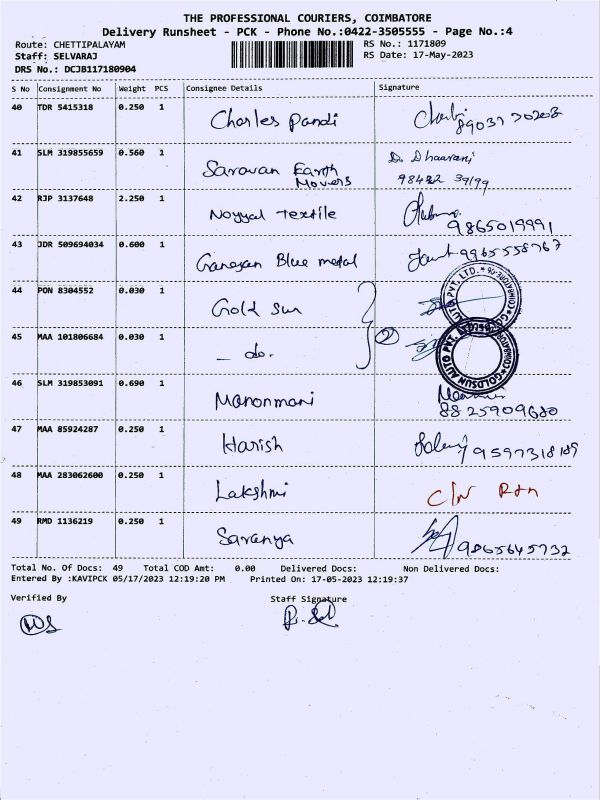 THE PROFESSIONAL COURIERS, COIMBATORE
Delivery Runsheet - PCK - Phone No.:0422-3505555 - Page No.:4
Route: CHETTIPALAYAM RS No.: 1171809
Staff: SELVARAJ RS Date: 17-May-2023
DRS No.: DCJB117180904
S No Consignment No Weight PCS Consignee Details Signature
40 TDR 5415318 0.250 1 Charles Pandi
41 SLM 319855659 0.560 1 Saravan Earth Movers D. Dhaarani
42 RJP 3137648 2.250 1 Noyyal Textile 9865019991
43 JDR 509694034 0.600 1 Ganesan Blue metal 9965558767
44 PON 8304552 0.030 1 Gold Sun
45 MAA 101806684 0.030 1 - do. 2
GOLDSUN AUTO PVT. LTD. COIMBATORE
46 SLM 319853091 0.690 1 Manonmani 8825909680
47 MAA 85924287 0.250 1 Harish 9597318189
48 MAA 283062600 0.250 1 Lakshmi C/N Rtn
49 RMD 1136219 0.250 1 Saranya 9865645732
Total No. Of Docs: 49 Total COD Amt: 0.00 Delivered Docs: Non Delivered Docs:
Entered By :KAVIPCK 05/17/2023 12:19:20 PM Printed On: 17-05-2023 12:19:37
Verified By Staff Signature